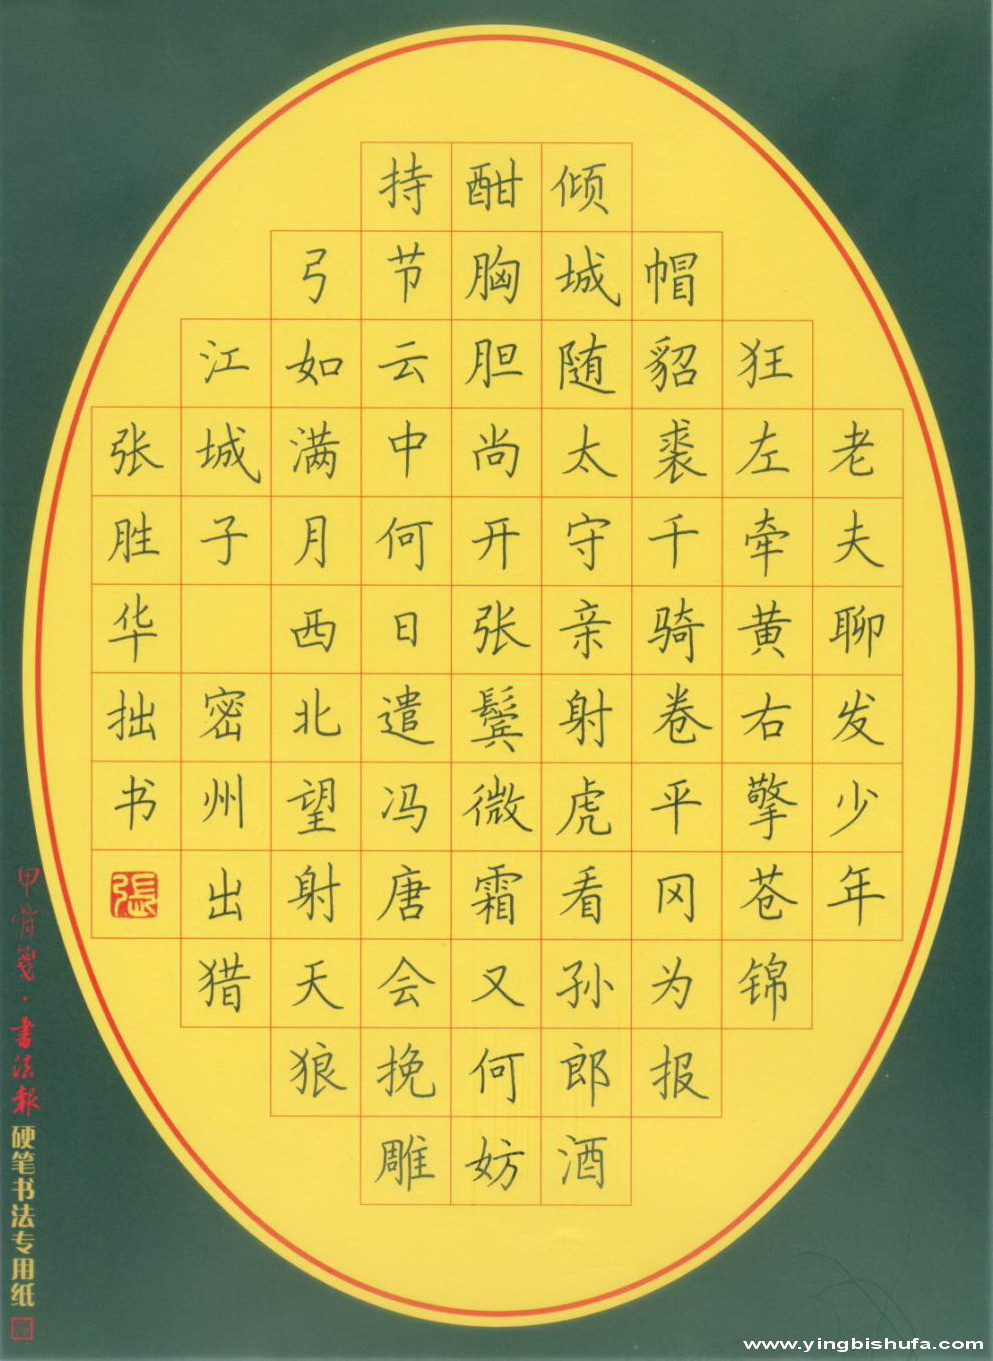 老夫聊发少年
狂左牵黄右擎苍锦
帽貂裘千骑卷平冈为报
倾城随太守亲射虎看孙郎酒
酣胸胆尚开张鬓微霜又何妨
持节云中何日遣冯唐会挽雕
弓如满月西北望射天狼
江城子 密州出猎
张胜华拙书
張
甲骨笺·書法報
硬笔书法专用纸
www.yingbishufa.com